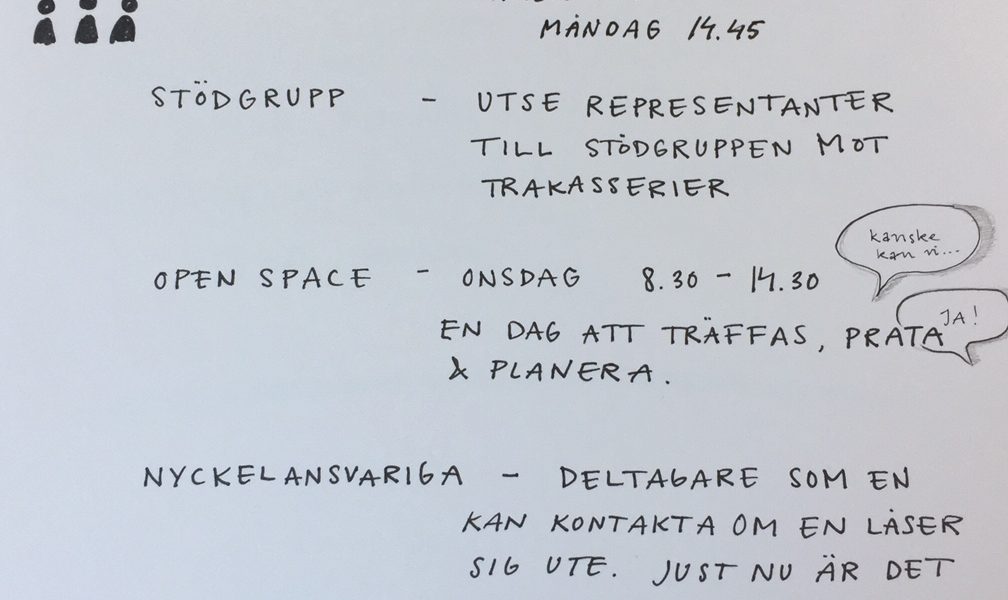 MÅNDAG 14.45
STÖDGRUPP - UTSE REPRESENTANTER
TILL STÖDGRUPPEN MOT
TRAKASSERIER
kanske
kan vi...
OPEN SPACE - ONSDAG 8.30 - 14.30
JA!
EN DAG ATT TRÄFFAS, PRATA
& PLANERA.
NYCKELANSVARIGA - DELTAGARE SOM EN
KAN KONTAKTA OM EN LÅSER
SIG UTE. JUST NU ÄR DET